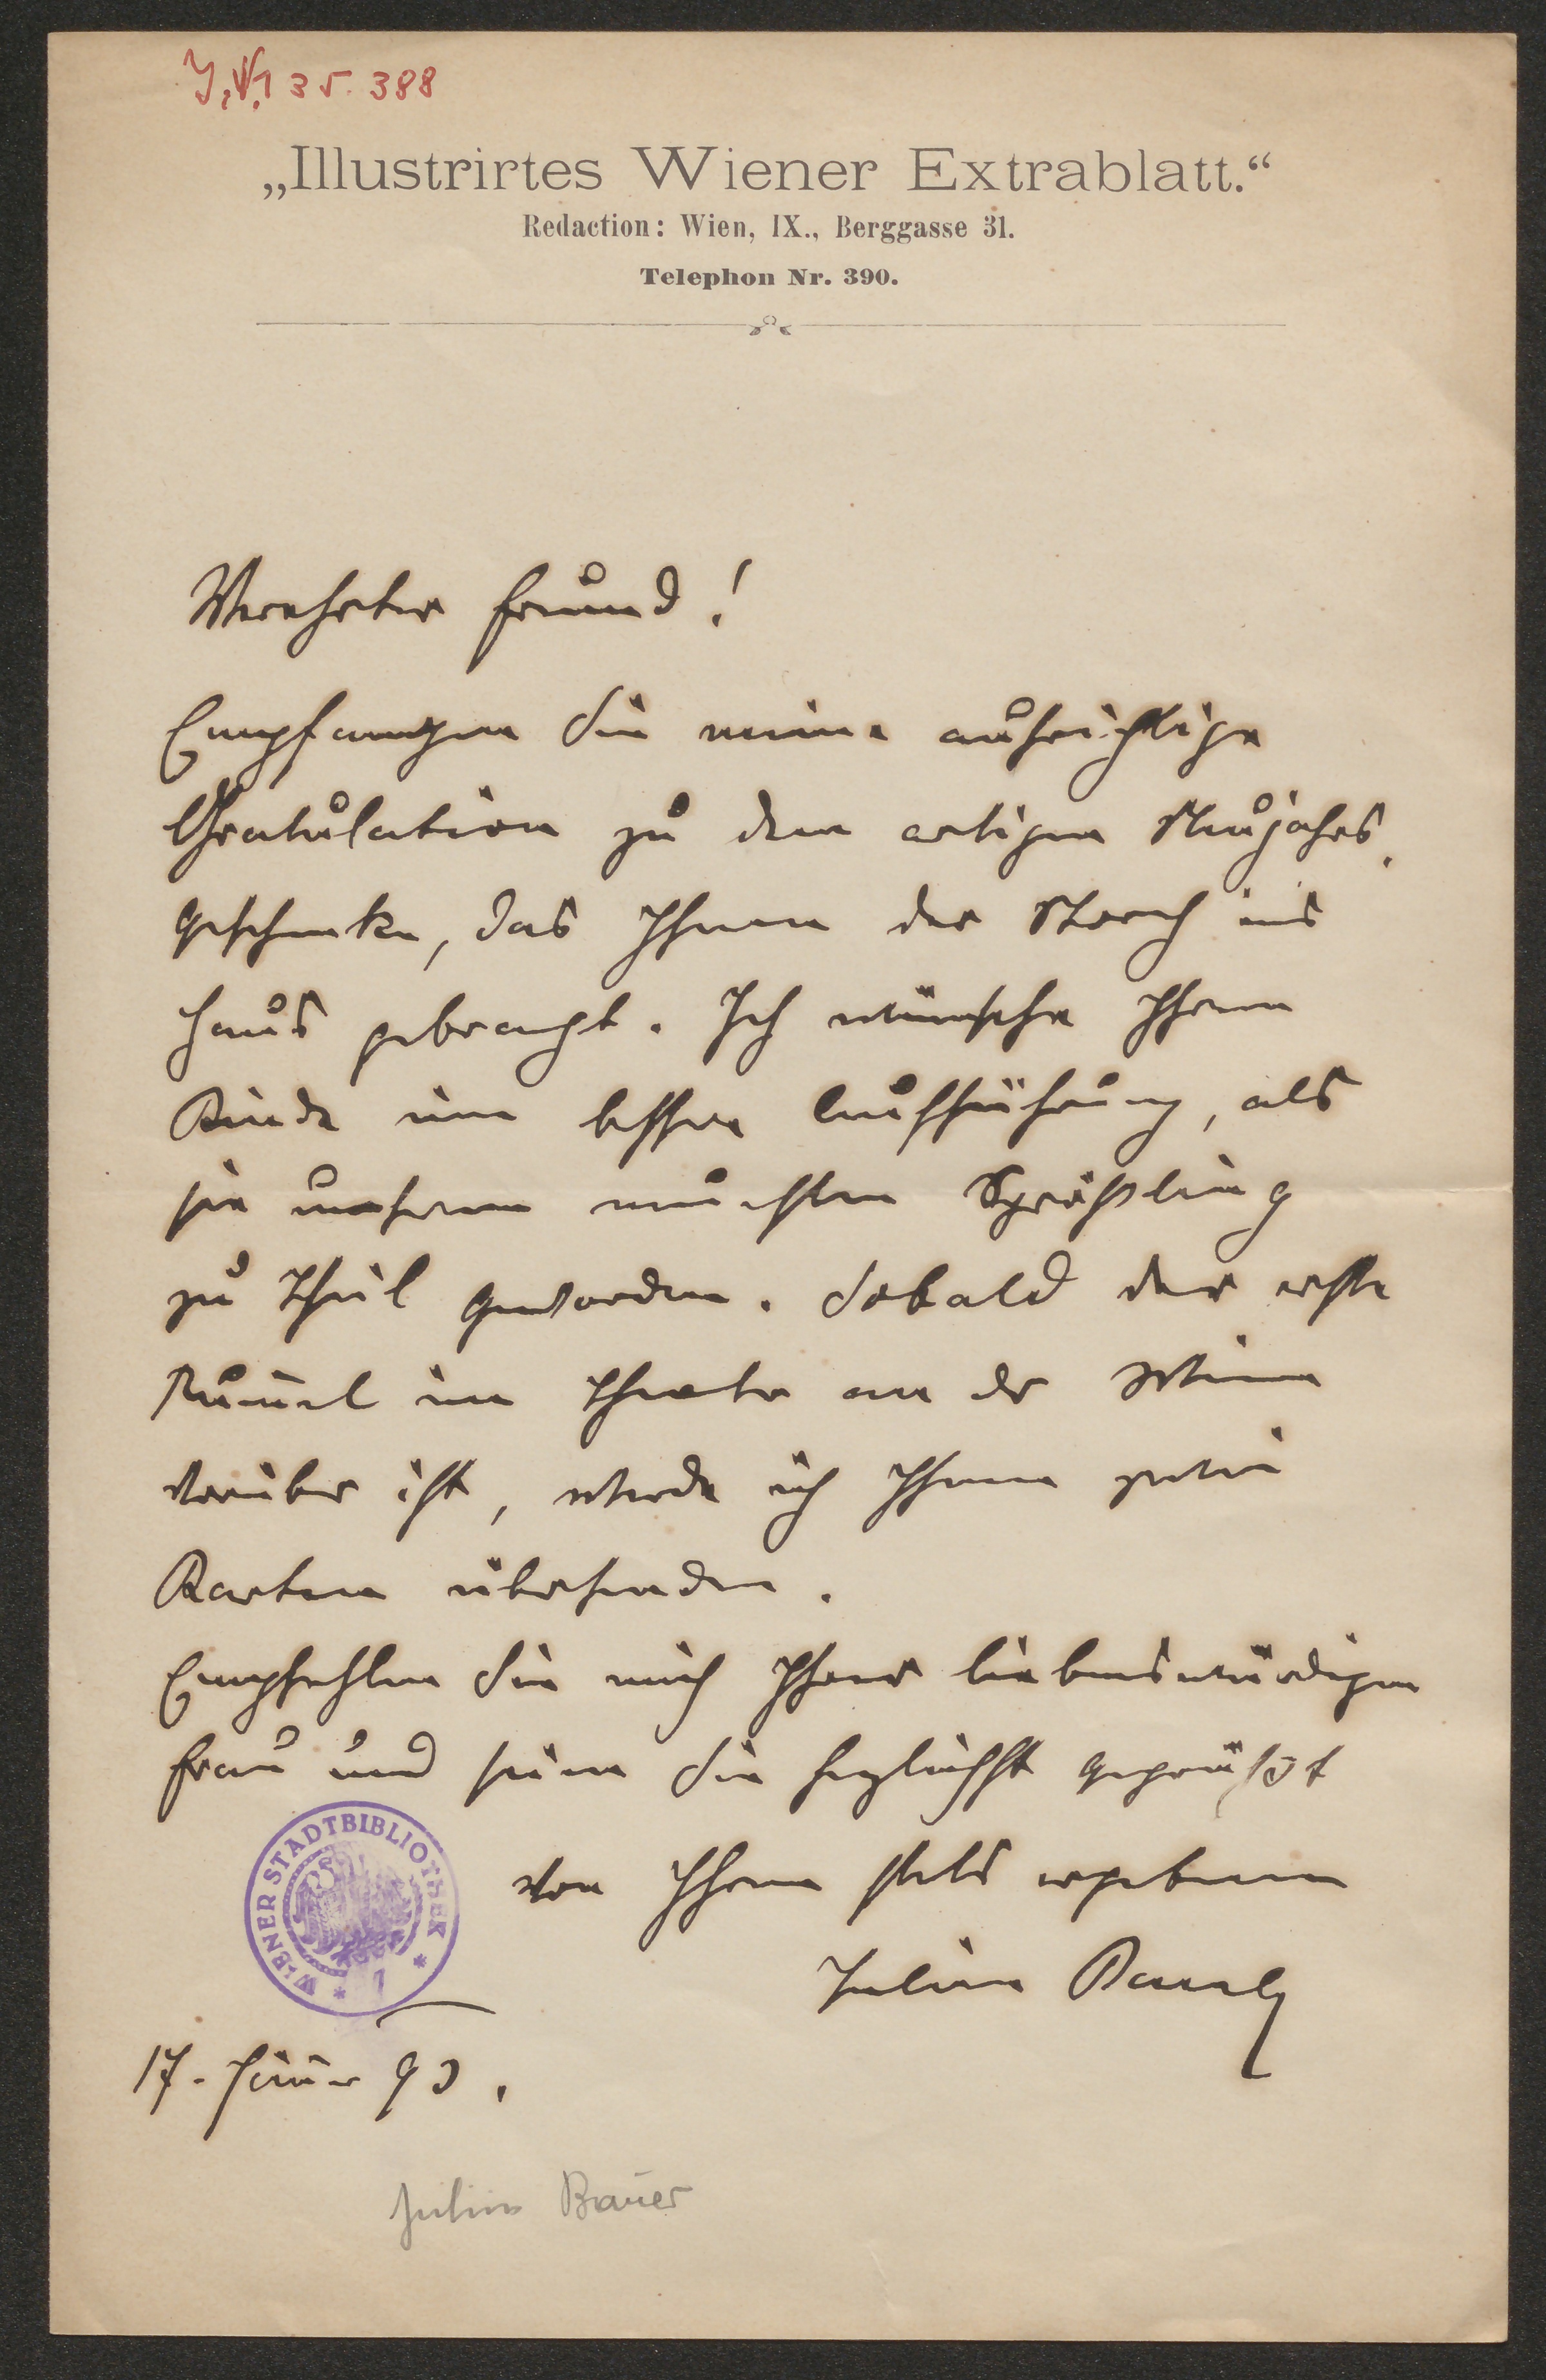 I. N. 135.388
„Illustrirtes Wiener Extrablatt.“
Redaction: Wien, IX., Berggasse 31.
Telephon Nr. 390.
Verehrter Freund!
Empfangen Sie meine aufrichtige
Gratulation zu dem artigen Neujahrs-
geschenke, das Ihnen der Storch ins
Haus gebracht. Ich wünsche Ihrem
Kinde eine bessere Aufführung, als
sie unserem neuesten Sprößling
zu Theil geworden. Sobald der erste
Rummel im Theater an der Wien
vorüber ist, werde ich Ihnen zwei
Karten übersenden.
Empfehlen Sie mich Ihrer liebenswürdigen
Frau und seien Sie herzlichst gegrüßt
von Ihrem stets ergebenen
Julius Bauer
WIENER STADTBIBLIOTHEK
17. Jänner 93.
Julius Bauer